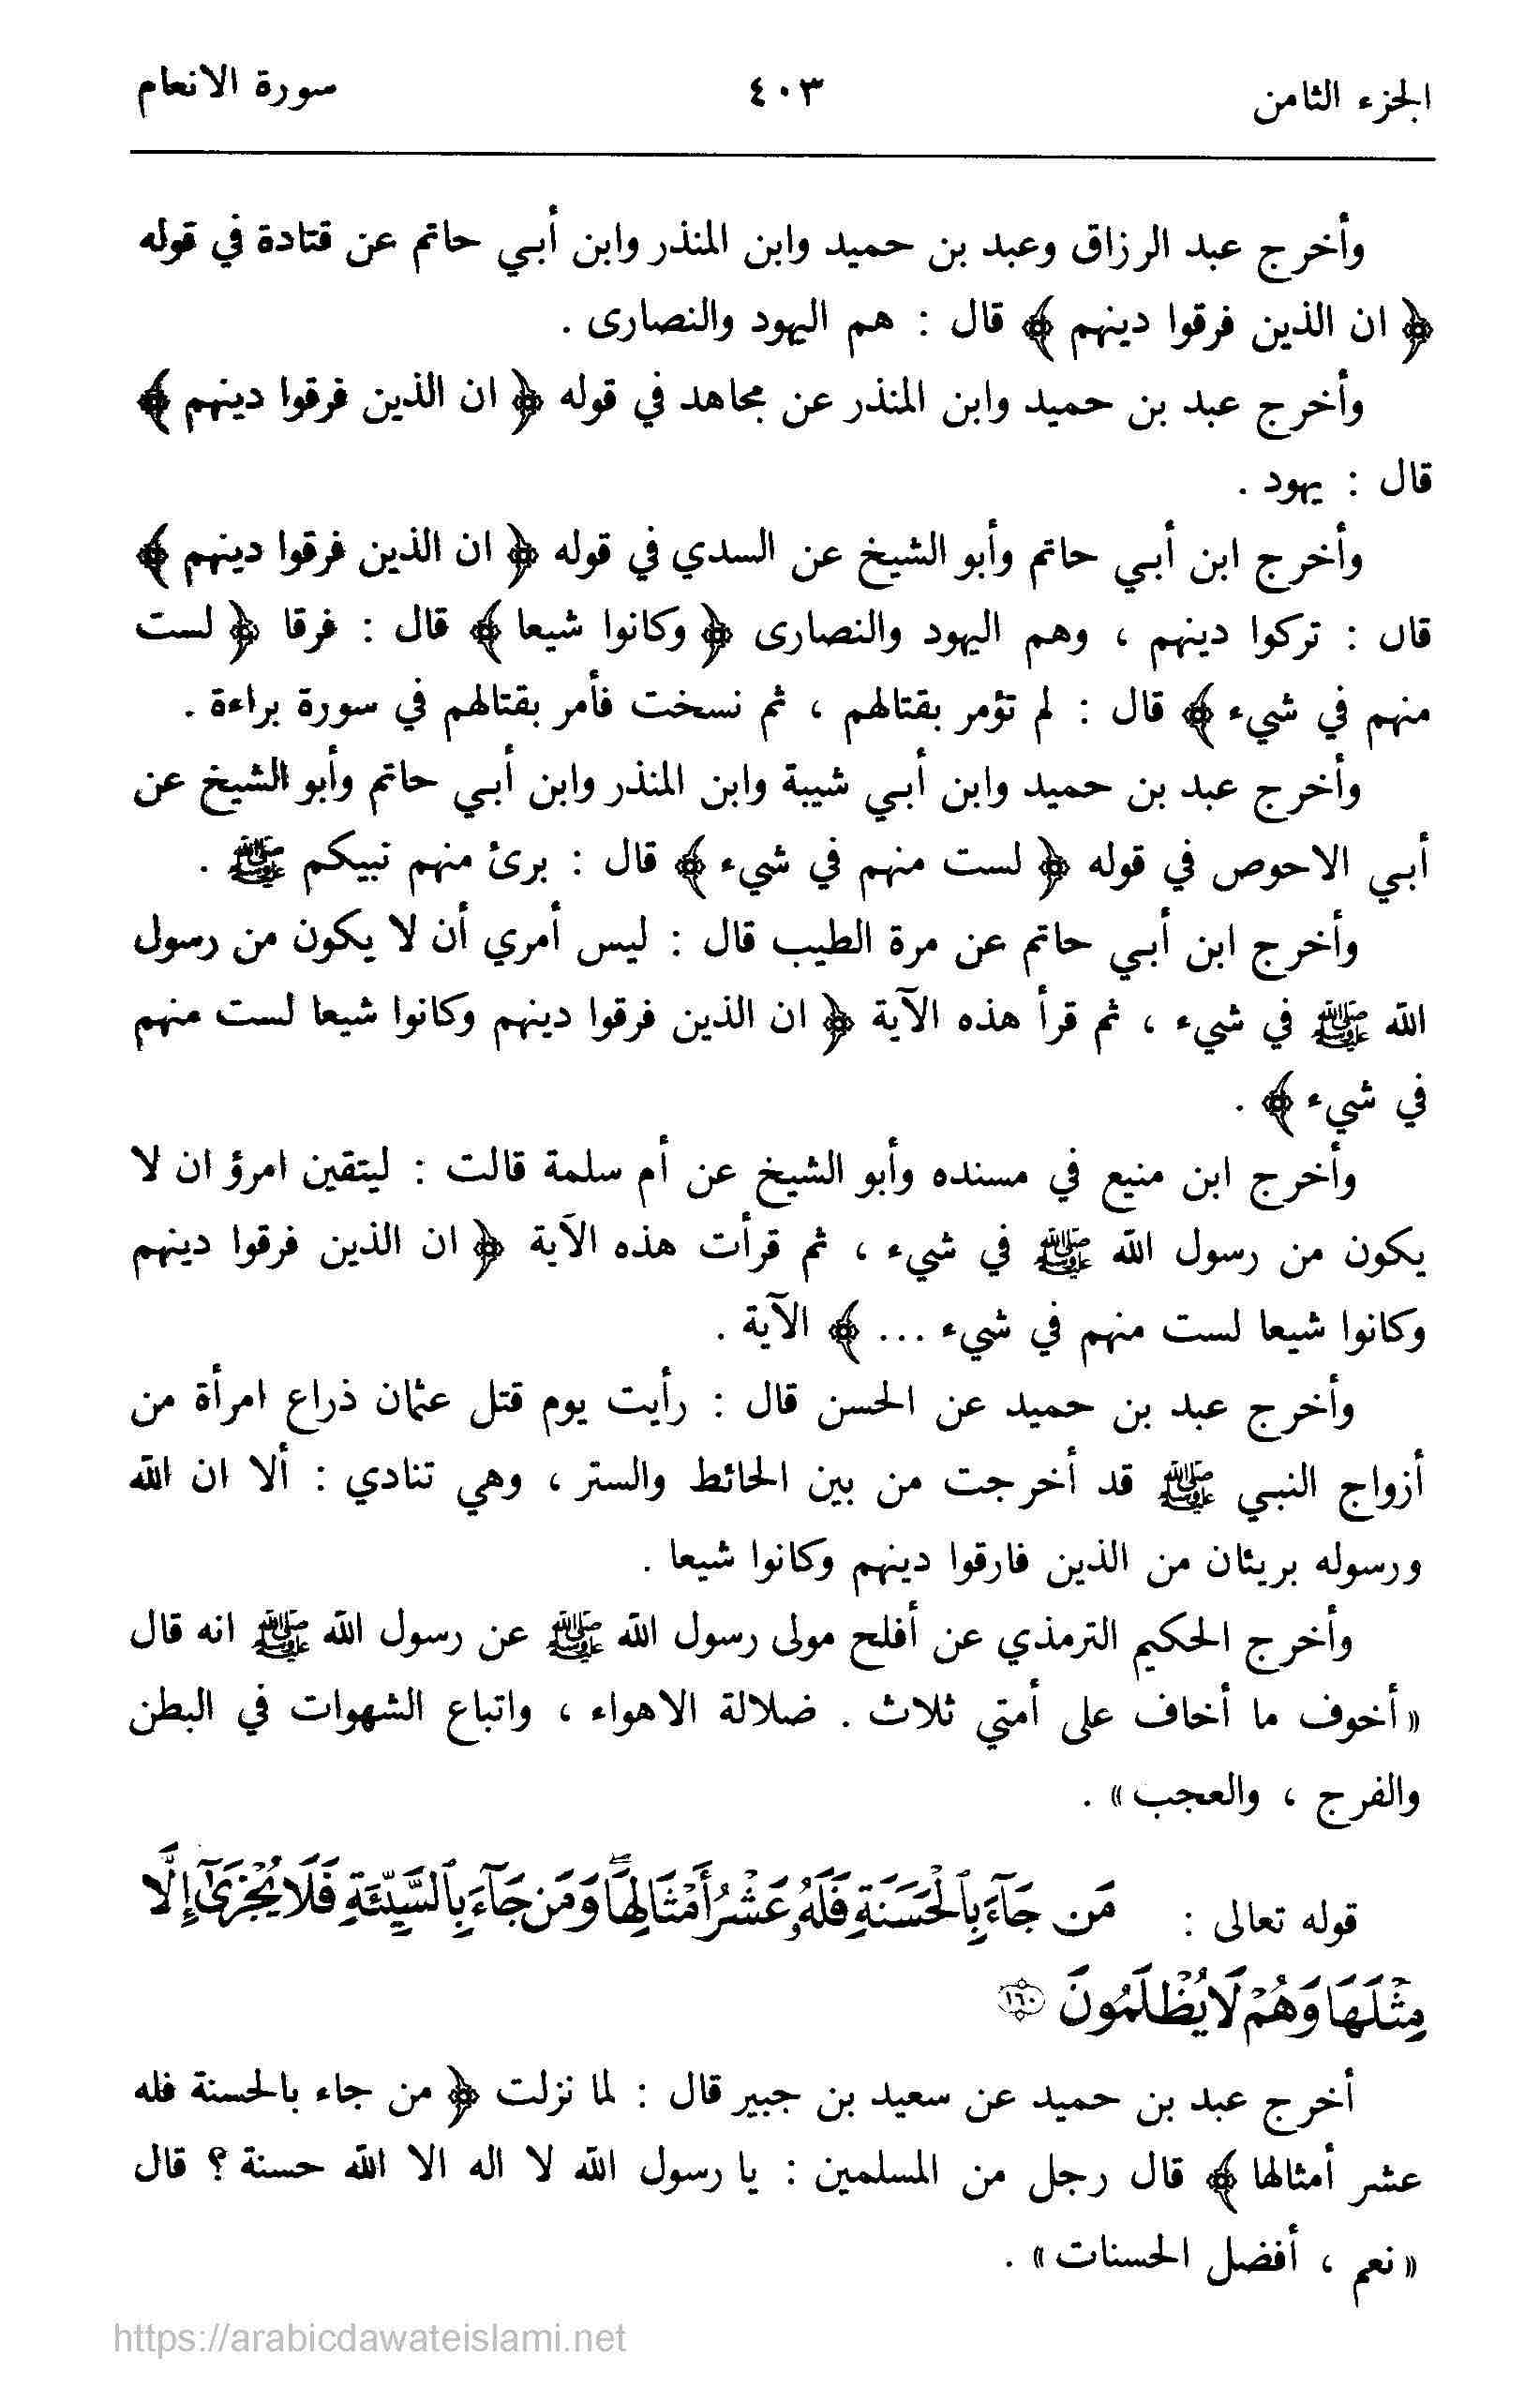 الجزء الثامن ٤٠٣ سورة الانعام
وأخرج عبد الرزاق وعبد بن حميد وابن المنذر وابن أبـي حاتم عن قتادة في قوله
﴿ ان الذين فرقوا دينهم ﴾ قال : هم اليهود والنصارى .
وأخرج عبد بن حميد وابن المنذر عن مجاهد في قوله ﴿ ان الذين فرقوا دينهم ﴾
قال : يهود .
وأخرج ابن أبـي حاتم وأبو الشيخ عن السدي في قوله ﴿ ان الذين فرقوا دينهم ﴾
قال : تركوا دينهم ، وهم اليهود والنصارى ﴿ وكانوا شيعا ﴾ قال : فرقا ﴿ لست
منهم في شيء ﴾ قال : لم تؤمر بقتالهم ، ثم نسخت فأمر بقتالهم في سورة براءة .
وأخرج عبد بن حميد وابن أبـي شيبة وابن المنذر وابن أبـي حاتم وأبو الشيخ عن
أبـي الاحوص في قوله ﴿ لست منهم في شيء ﴾ قال : برئ منهم نبيكم ﷺ .
وأخرج ابن أبـي حاتم عن مرة الطيب قال : ليس أمري أن لا يكون من رسول
الله ﷺ في شيء ، ثم قرأ هذه الآية ﴿ ان الذين فرقوا دينهم وكانوا شيعا لست منهم
في شيء ﴾ .
وأخرج ابن منيع في مسنده وأبو الشيخ عن أم سلمة قالت : ليتقين امرؤ ان لا
يكون من رسول الله ﷺ في شيء ، ثم قرأت هذه الآية ﴿ ان الذين فرقوا دينهم
وكانوا شيعا لست منهم في شيء ... ﴾ الآية .
وأخرج عبد بن حميد عن الحسن قال : رأيت يوم قتل عثمان ذراع امرأة من
أزواج النبـي ﷺ قد أخرجت من بين الحائط والستر ، وهي تنادي : ألا ان الله
ورسوله بريئان من الذين فارقوا دينهم وكانوا شيعا .
وأخرج الحكيم الترمذي عن أفلح مولى رسول الله ﷺ عن رسول الله ﷺ انه قال
« أخوف ما أخاف على أمتي ثلاث . ضلالة الاهواء ، واتباع الشهوات في البطن
والفرج ، والعجب » .
قوله تعالى : مَن جَآءَ بِٱلْحَسَنَةِ فَلَهُۥ عَشْرُ أَمْثَالِهَاۖ وَمَن جَآءَ بِٱلسَّيِّئَةِ فَلَا يُجْزَىٰٓ إِلَّا
مِثْلَهَا وَهُمْ لَا يُظْلَمُونَ ١٦٠
أخرج عبد بن حميد عن سعيد بن جبير قال : لما نزلت ﴿ من جاء بالحسنة فله
عشر أمثالها ﴾ قال رجل من المسلمين : يا رسول الله لا اله الا الله حسنة ؟ قال
« نعم ، أفضل الحسنات » .
https://arabicdawateislami.net